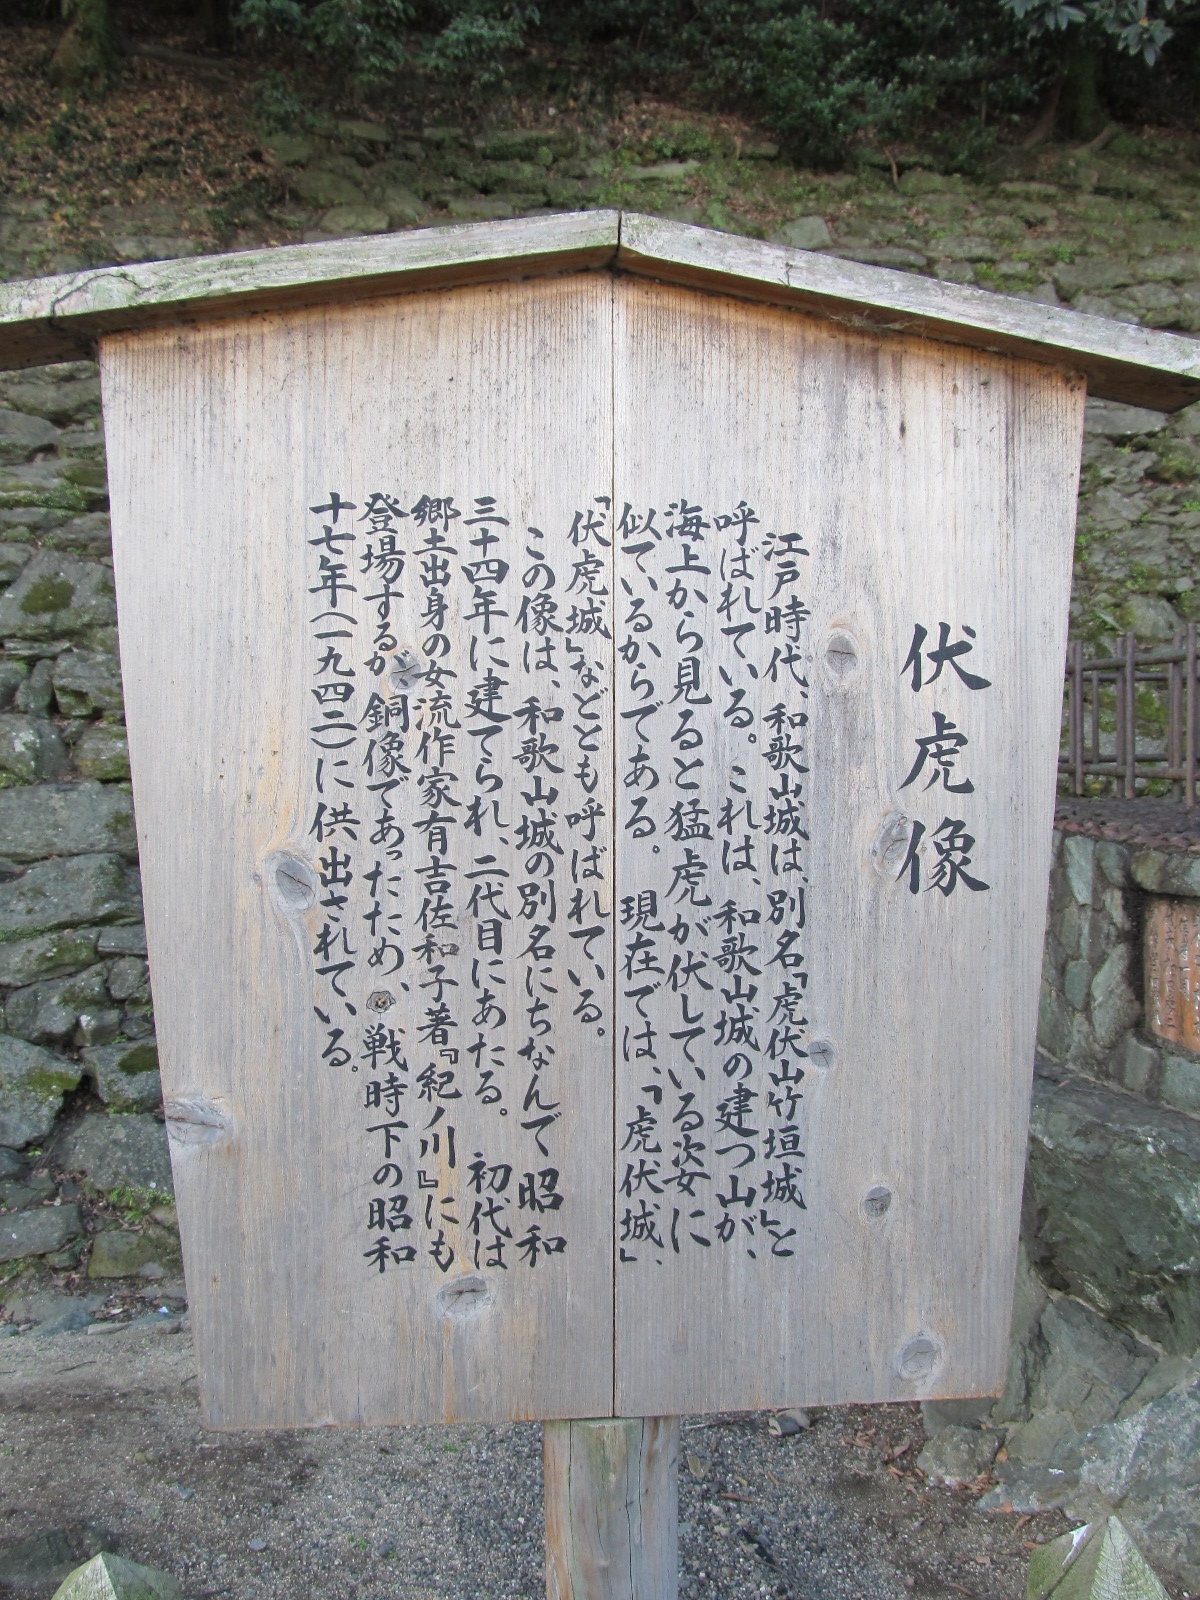 伏虎像
江戸時代、和歌山城は、別名「虎伏山竹垣城」と
呼ばれている。これは、和歌山城の建つ山が、
海上から見ると猛虎が伏している姿に
似ているからである。現在では、「虎伏城」、
「伏虎城」などとも呼ばれている。
この像は、和歌山城の別名にちなんで昭和
三十四年に建てられ、二代目にあたる。初代は
郷土出身の女流作家有吉佐和子著『紀ノ川』にも
登場するが、銅像であったため、戦時下の昭和
十七年(一九四二)に供出されている。